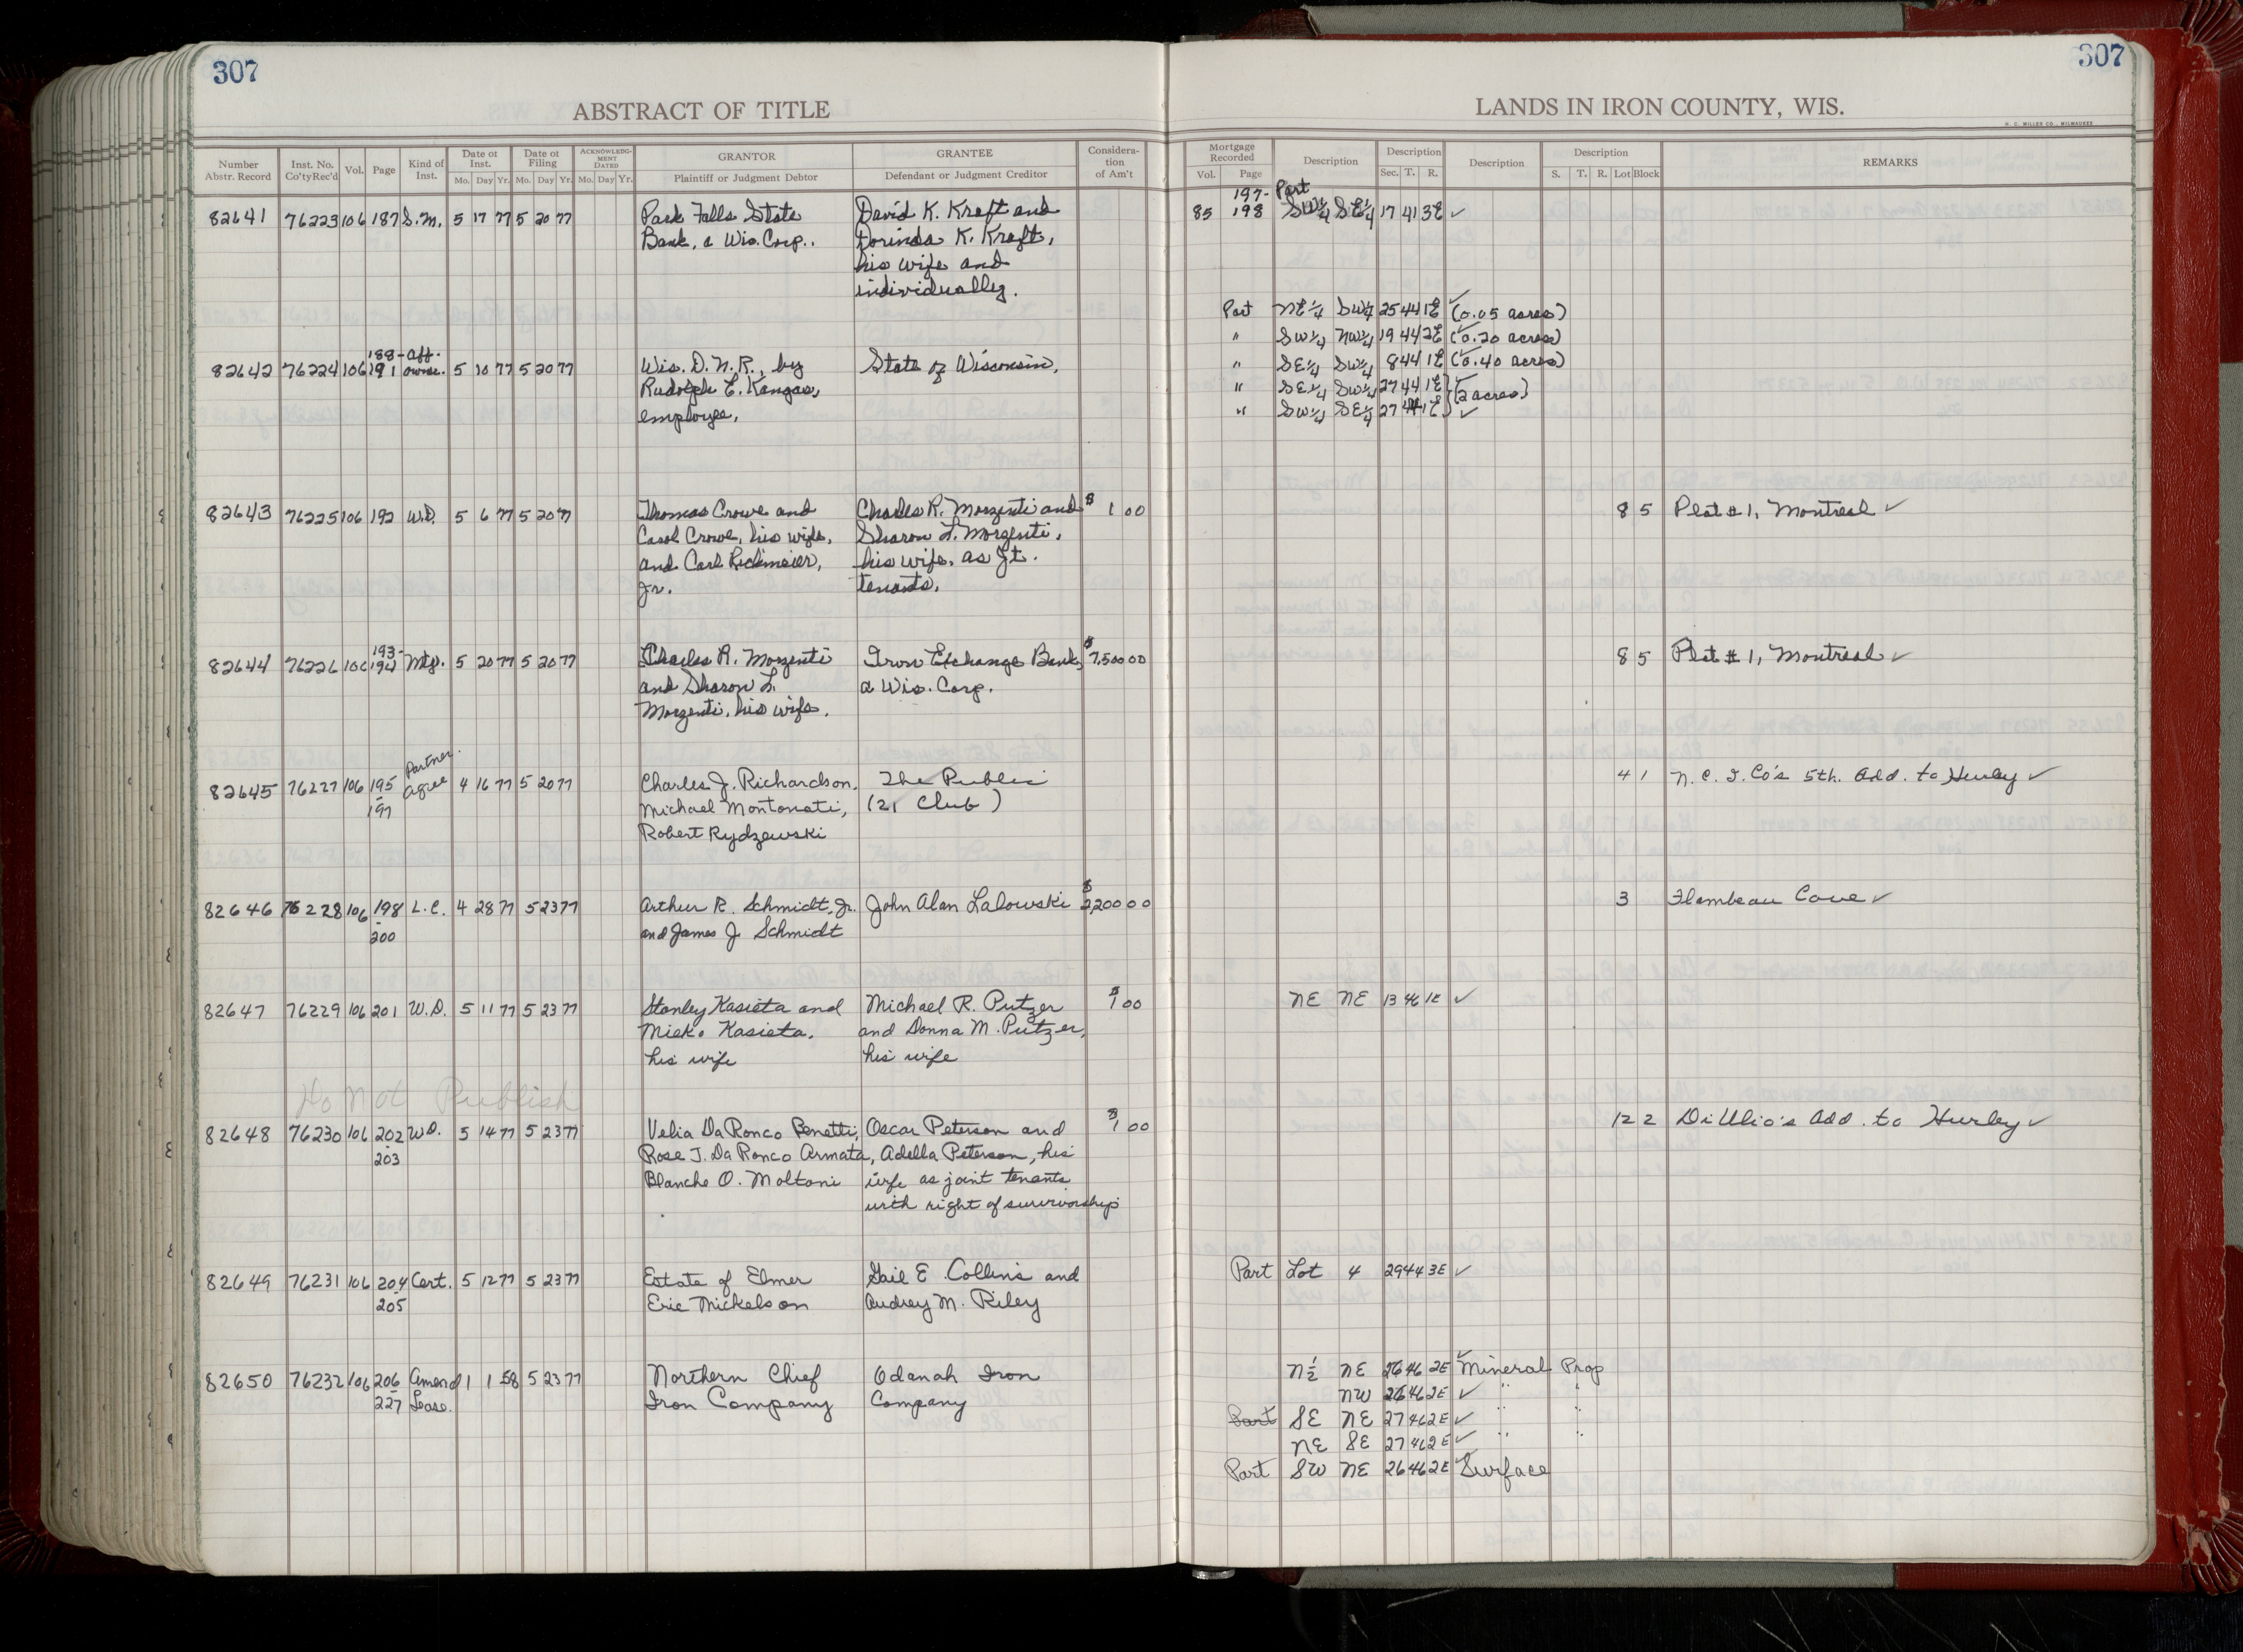 307
307
ABSTRACT OF TITLE
LANDS IN IRON COUNTY, WIS.
H. C. MILLER CO., MILWAUKEE
Number Abstr. Record
Inst. No. Co'ty Rec'd
Vol.
Page
Kind of Inst.
Date of Inst. Mo. Day Yr.
Date of Filing Mo. Day Yr.
ACKNOWLEDGMENT DATED Mo. Day Yr.
GRANTOR Plaintiff or Judgment Debtor
GRANTEE Defendant or Judgment Creditor
Consideration of Am't
Mortgage Recorded Vol. Page
Description
Description Sec. T. R.
Description
Description S. T. R. Lot Block
REMARKS
197- Part
82641 76223 106 187 S.M. 5 17 77 5 20 77 Park Falls State David K. Kraft and 85 198 SW¼ SE¼ 17 41 3E ✓
Bank, a Wis. Corp.. Dorinda K. Kraft,
his wife and
individually.
Part NE¼ SW¼ 25 44 1E ✓ (0.05 acres)
" SW¼ NW¼ 19 44 2E ✓ (0.20 acres)
188- aff.
82642 76224 106 191 owner. 5 10 77 5 20 77 Wis. D.N.R., by State of Wisconsin. " SE¼ SW¼ 8 44 1E ✓ (0.40 acres)
Rudolph E. Kangas, " SE¼ SW¼ 27 44 1E ✓ (2 acres)
employee. " SW¼ SE¼ 27 44 1E ✓
82643 76225 106 192 W.D. 5 6 77 5 20 77 Thomas Crowe and Charles R. Morzenti and $1 00 8 5 Plat #1, Montreal ✓
Carol Crowe, his wife, Sharon L. Morzenti,
and Carl Richmeier, his wife, as Jt.
Jr. tenants.
193-
82644 76226 106 194 Mtg. 5 20 77 5 20 77 Charles R. Morzenti Iron Exchange Bank, $7,500 00 8 5 Plat #1, Montreal ✓
and Sharon L. a Wis. Corp.
Morzenti, his wife.
Partner.
82645 76227 106 195 agree 4 16 77 5 20 77 Charles J. Richardson, The Public 4 1 N.C.I. Co's 5th. Add. to Hurley ✓
- 197 Michael Montonati, (21 Club)
Robert Rydzewski
82646 76228 106 198 L.C. 4 28 77 5 23 77 Arthur R. Schmidt, Jr. John Alan Lalowski $2,200 00 3 Flambeau Cove ✓
- 200 and James J. Schmidt
82647 76229 106 201 W.D. 5 11 77 5 23 77 Stanley Kasieta and Michael R. Putzer $1 00 NE NE 13 46 1E ✓
Mieko Kasieta, and Donna M. Putzer,
his wife his wife
Do Not Publish
82648 76230 106 202 W.D. 5 14 77 5 23 77 Velia DaRonco Benetti, Oscar Peterson and $1 00 12 2 DiUlio's Add. to Hurley ✓
- 203 Rose J. DaRonco Armata, Adella Peterson, his
Blanche O. Moltoni wife as joint tenants
with right of survivorship
82649 76231 106 204 Cert. 5 12 77 5 23 77 Estate of Elmer Gail E. Collins and Part Lot 4 29 44 3E ✓
- 205 Eric Mickelson Audrey M. Riley
82650 76232 106 206 Amend 1 1 58 5 23 77 Northern Chief Odanah Iron N½ NE 26 46 2E ✓ Mineral Prop
- 227 Lease. Iron Company Company NW 26 46 2E ✓ " "
Part SE NE 27 46 2E ✓ " "
NE SE 27 46 2E ✓ " "
Part SW NE 26 46 2E ✓ Surface